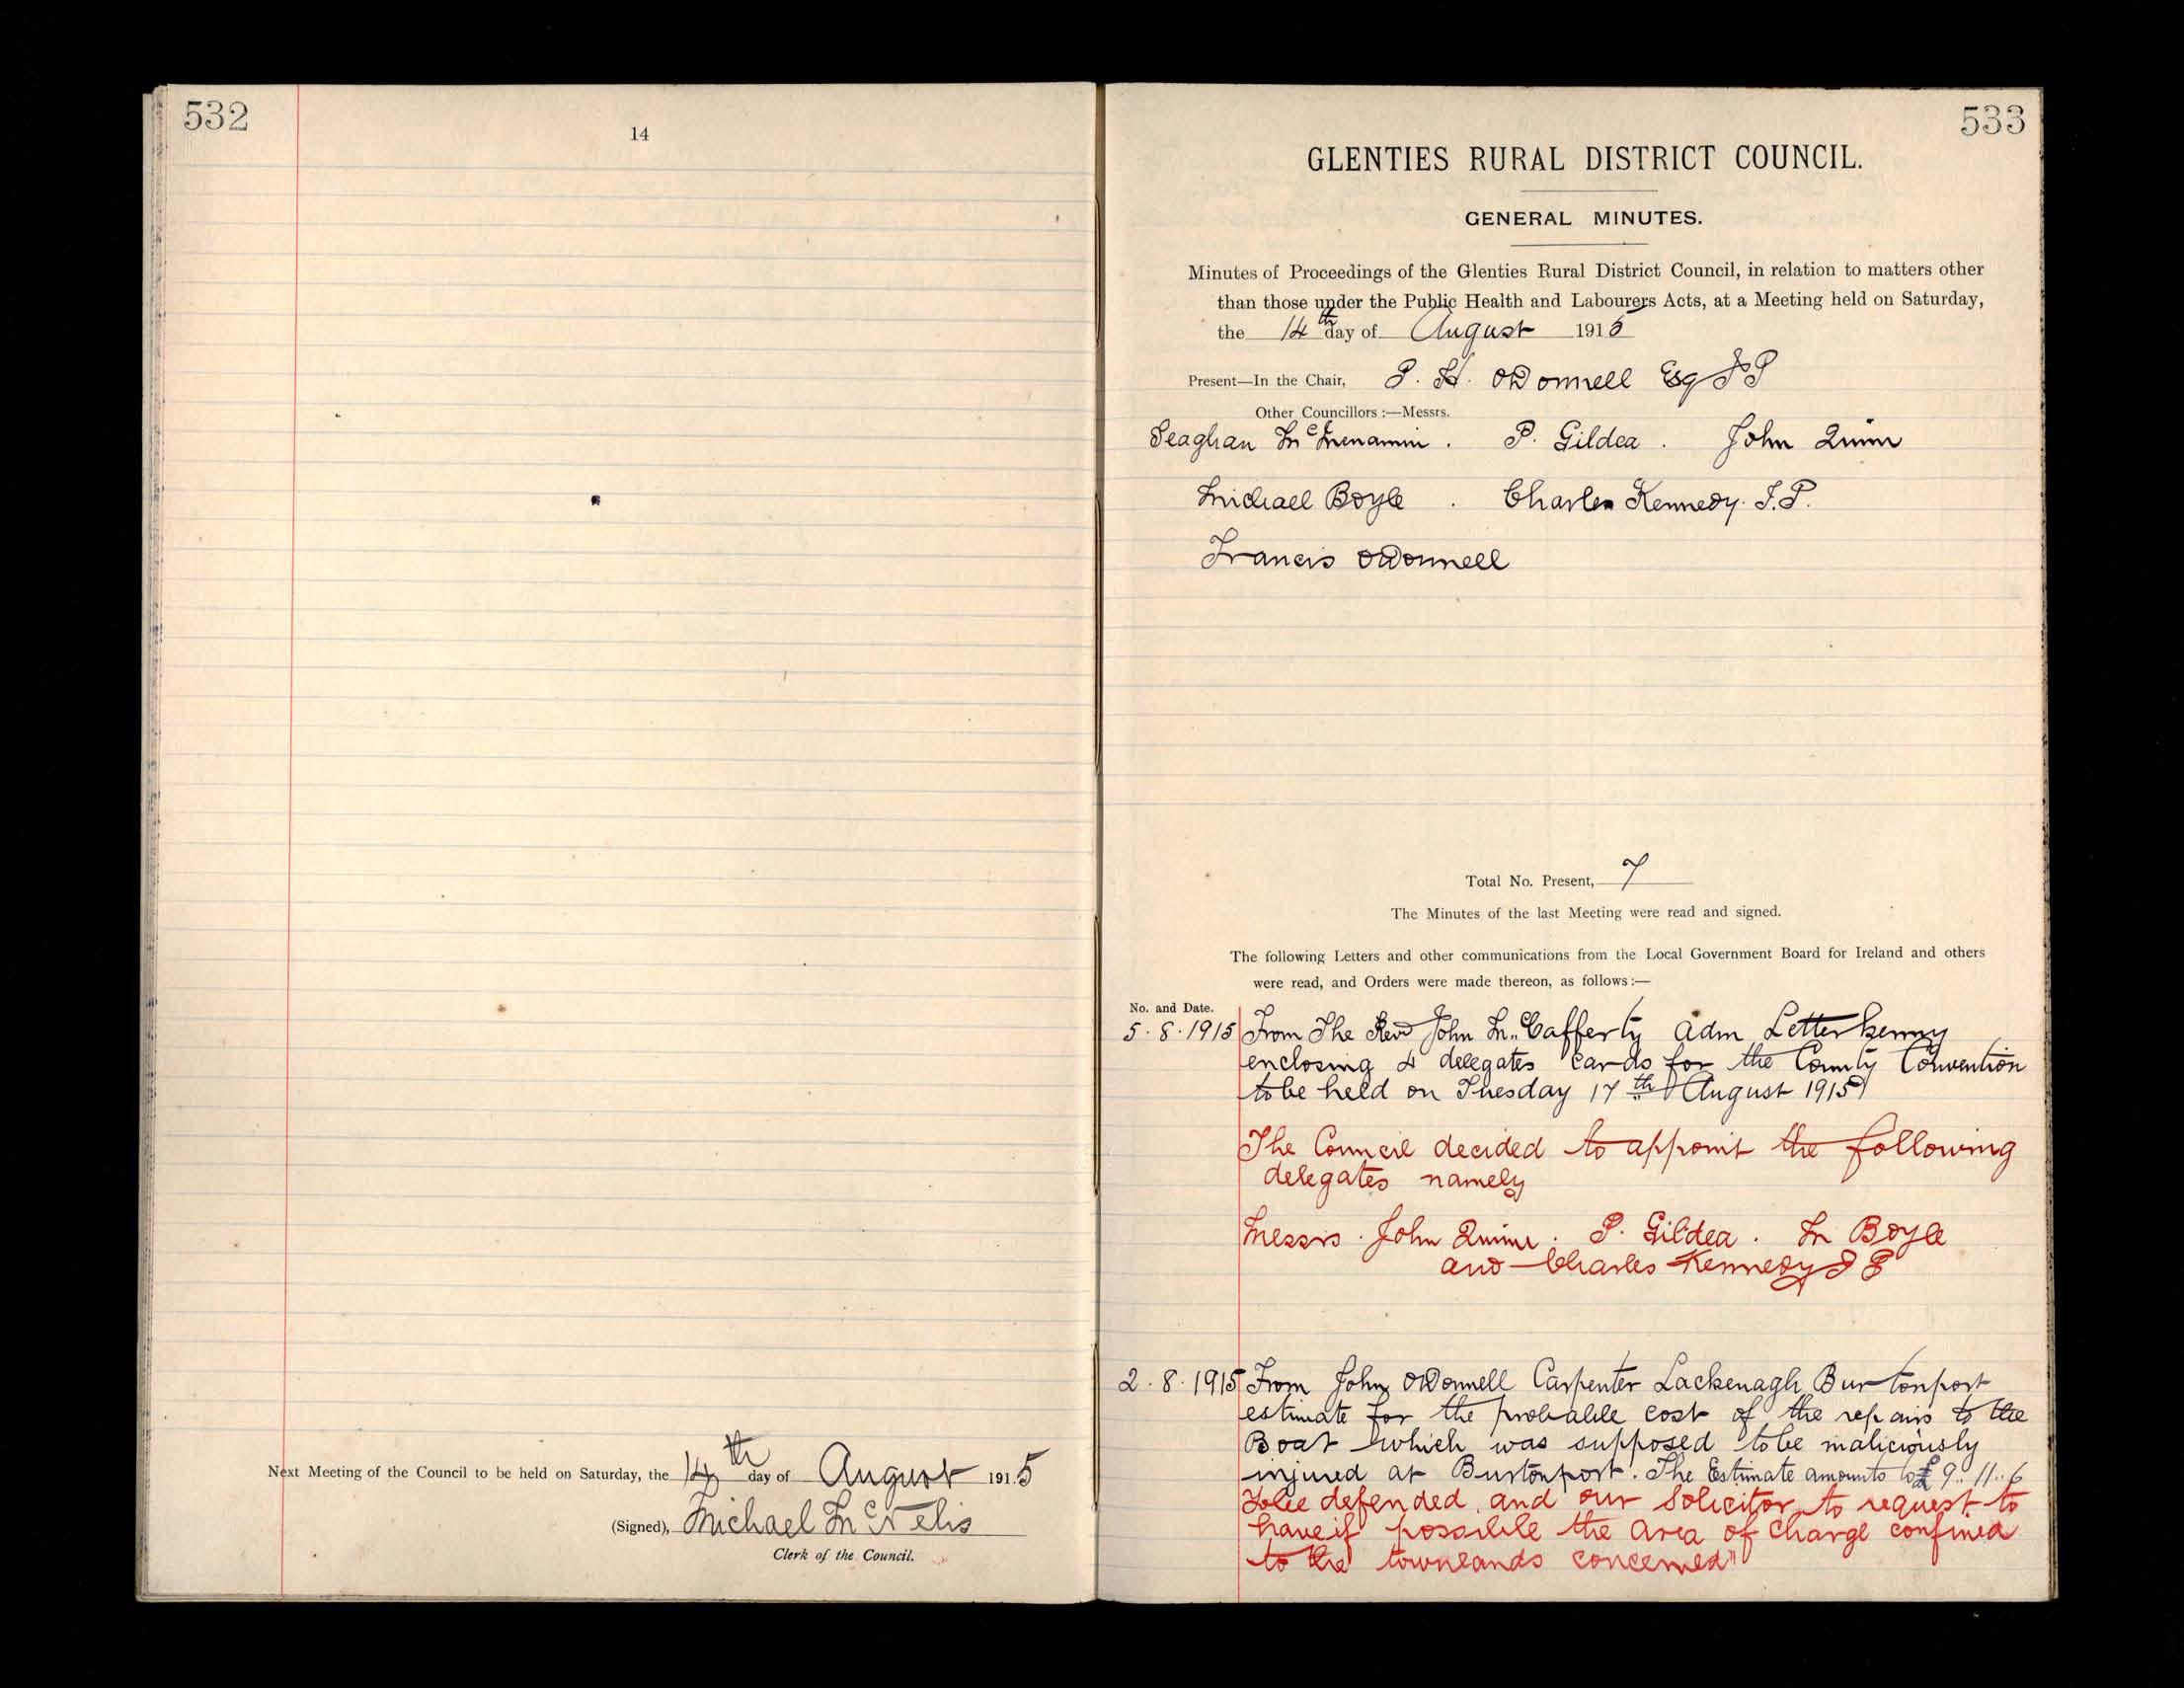 532
14
Next Meeting of the Council to be held on Saturday, the 14th day of August 1915
(Signed), Michael McNelis
Clerk of the Council.
533
GLENTIES RURAL DISTRICT COUNCIL.
GENERAL MINUTES.
Minutes of Proceedings of the Glenties Rural District Council, in relation to matters other
than those under the Public Health and Labourers Acts, at a Meeting held on Saturday,
the 14th day of August 1915
Present—In the Chair, P. H. O'Donnell Esq JP
Other Councillors :—Messrs.
Seaghan McMenamin . P. Gildea . John Quinn
Michael Boyle . Charles Kennedy. J.P.
Francis O'Donnell
Total No. Present, 7
The Minutes of the last Meeting were read and signed.
The following Letters and other communications from the Local Government Board for Ireland and others
were read, and Orders were made thereon, as follows :—
No. and Date.
5.8.1915 From The Revd John McCafferty Adm Letterkenny
enclosing 4 delegates cards for the County Convention
to be held on Tuesday 17th August 1915
The Council decided to appoint the following
delegates namely
Messrs. John Quinn. P. Gildea. M Boyle
and Charles Kennedy JP
2.8.1915 From John O'Donnell Carpenter Lackenagh Burtonport
estimate for the probable cost of the repairs to the
Boat which was supposed to be maliciously
injured at Burtonport. The Estimate amounts to £9..11..6
To be defended and our Solicitor to request to
have if possible the area of charge confined
to the townlands concerned"